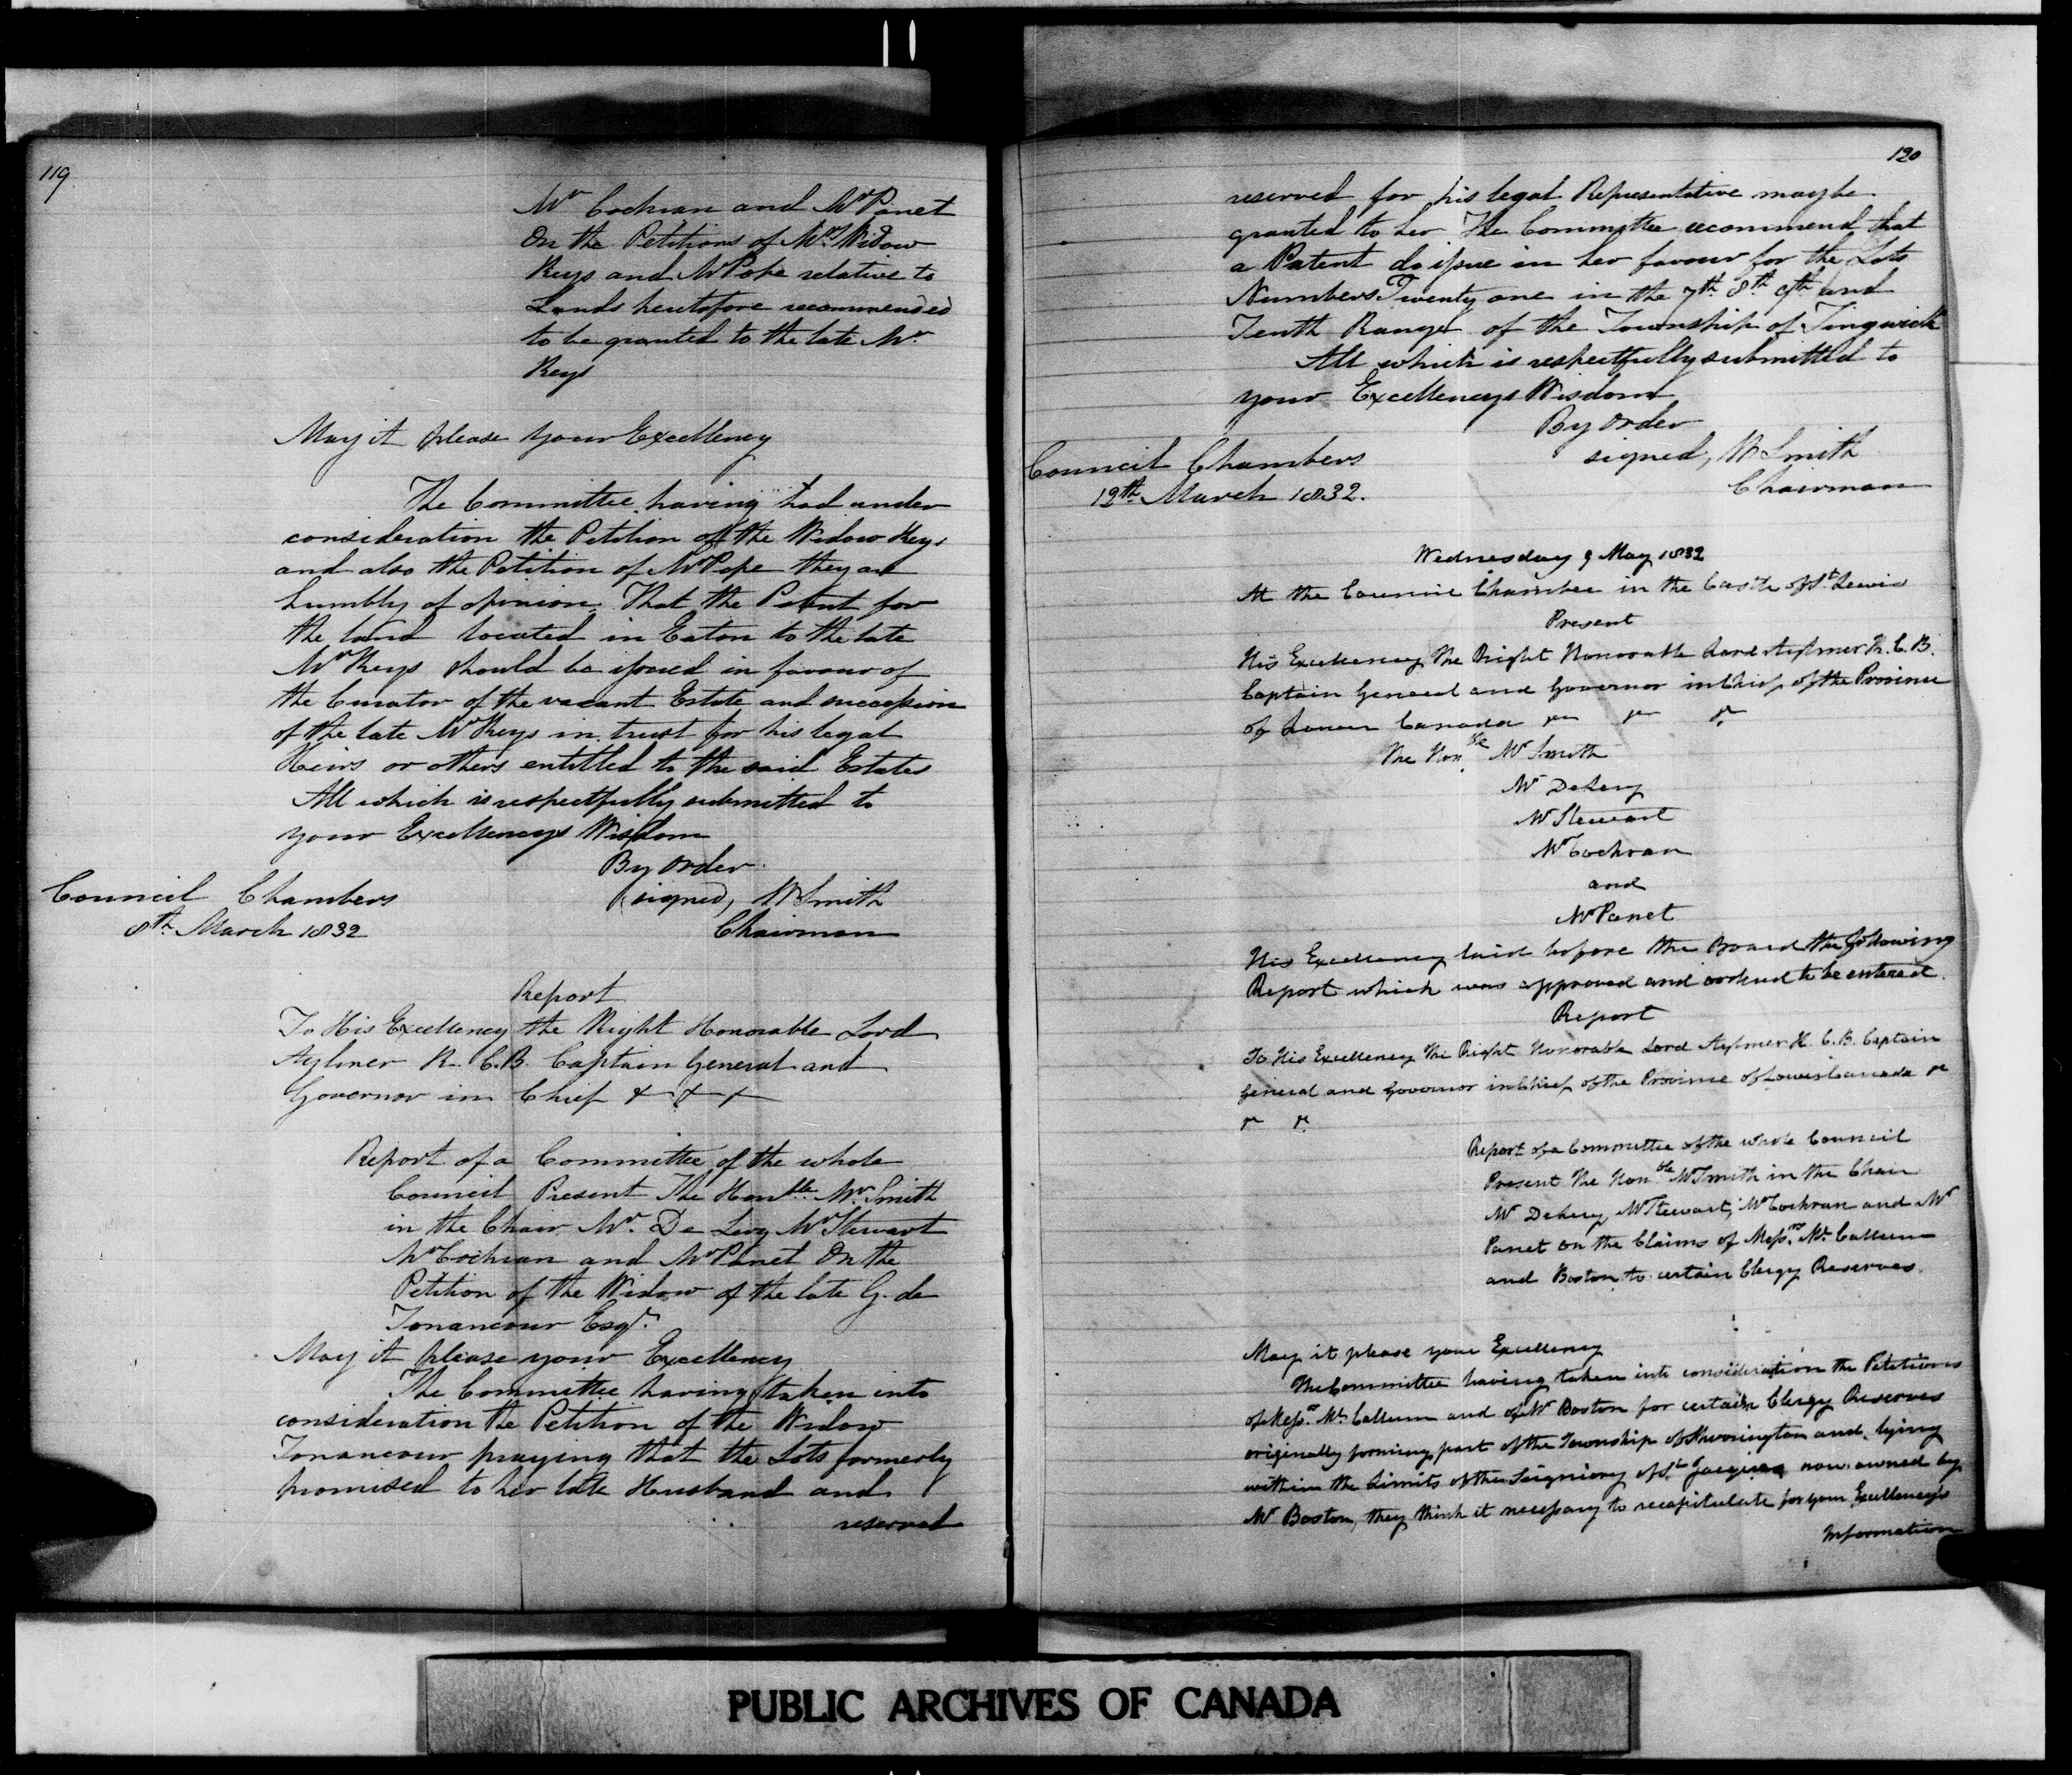 119
Mr Cochran and Mr Panet
On the Petitions of Mrs Widow
Keys and Mr Pope relative to
Lands heretofore recommended
to be granted to the late Mr
Keys
May it please your Excellency
The Committee having had under
consideration the Petition of the Widow Keys
and also the Petition of Mr Pope they are
humbly of opinion That the Patent for
the land located in Eaton to the late
Mr Keys should be issued in favour of
the Curator of the vacant Estate and succession
of the late Mr Keys in trust for his legal
Heirs or others entitled to the said Estates
All which is respectfully submitted to
your Excellencys Wisdom
By order
Council Chambers (signed, W Smith
8th March 1832 Chairman
Report
To His Excellency the Right Honorable Lord
Aylmer K. C.B. Captain General and
Governor in Chief & & &
Report of a Committee of the whole
Council Present The Honble Mr Smith
in the Chair Mr De Lery Mr Stewart
Mr Cochran and Mr Panet On the
Petition of the Widow of the late G. de
Tonancour Esqr.
May it please your Excellency
The Committee having taken into
consideration the Petition of the Widow
Tonancour praying that the Lots formerly
promised to her late Husband and
reserved
120
reserved for his legal Representative may be
granted to her The Committee recommend that
a Patent do issue in her favour for the Lots
Numbers Twenty one in the 7th 8th 9th and
Tenth Ranges of the Township of Tingwick
All which is respectfully submitted to
your Excellencys Wisdom
By order
Council Chambers signed, W Smith
12th March 1832. Chairman
Wednesday 9 May 1832
At the Council Chamber in the Castle of St Lewis
Present
His Excellency The Right Honorable Lord Aylmer K. C. B.
Captain General and Governor in Chief of the Province
of Lower Canada &c &c &c
The Honble Mr Smith
Mr DeLery
Mr Stewart
Mr Cochran
and
Mr Panet
His Excellency laid before the Board the following
Report which was approved and ordered to be entered.
Report
To His Excellency The Right Honorable Lord Aylmer K. C. B. Captain
General and Governor in Chief of the Province of Lower Canada &c
&c &c
Report of a Committee of the whole Council
Present The Honble Mr Smith in the Chair
Mr DeLery, Mr Stewart, Mr Cochran and Mr
Panet on the Claims of Messrs Mc Callum
and Boston to certain Clergy Reserves.
May it please your Excellency
The Committee having taken into consideration the Petitions
of Messrs Mc Callum and of Mr Boston for certain Clergy Reserves
originally forming part of the Township of Sherrington and lying
within the Limits of the Seigniory of St Jacques now owned by
Mr Boston, they think it necessary to recapitulate for your Excellency's
Information
PUBLIC ARCHIVES OF CANADA